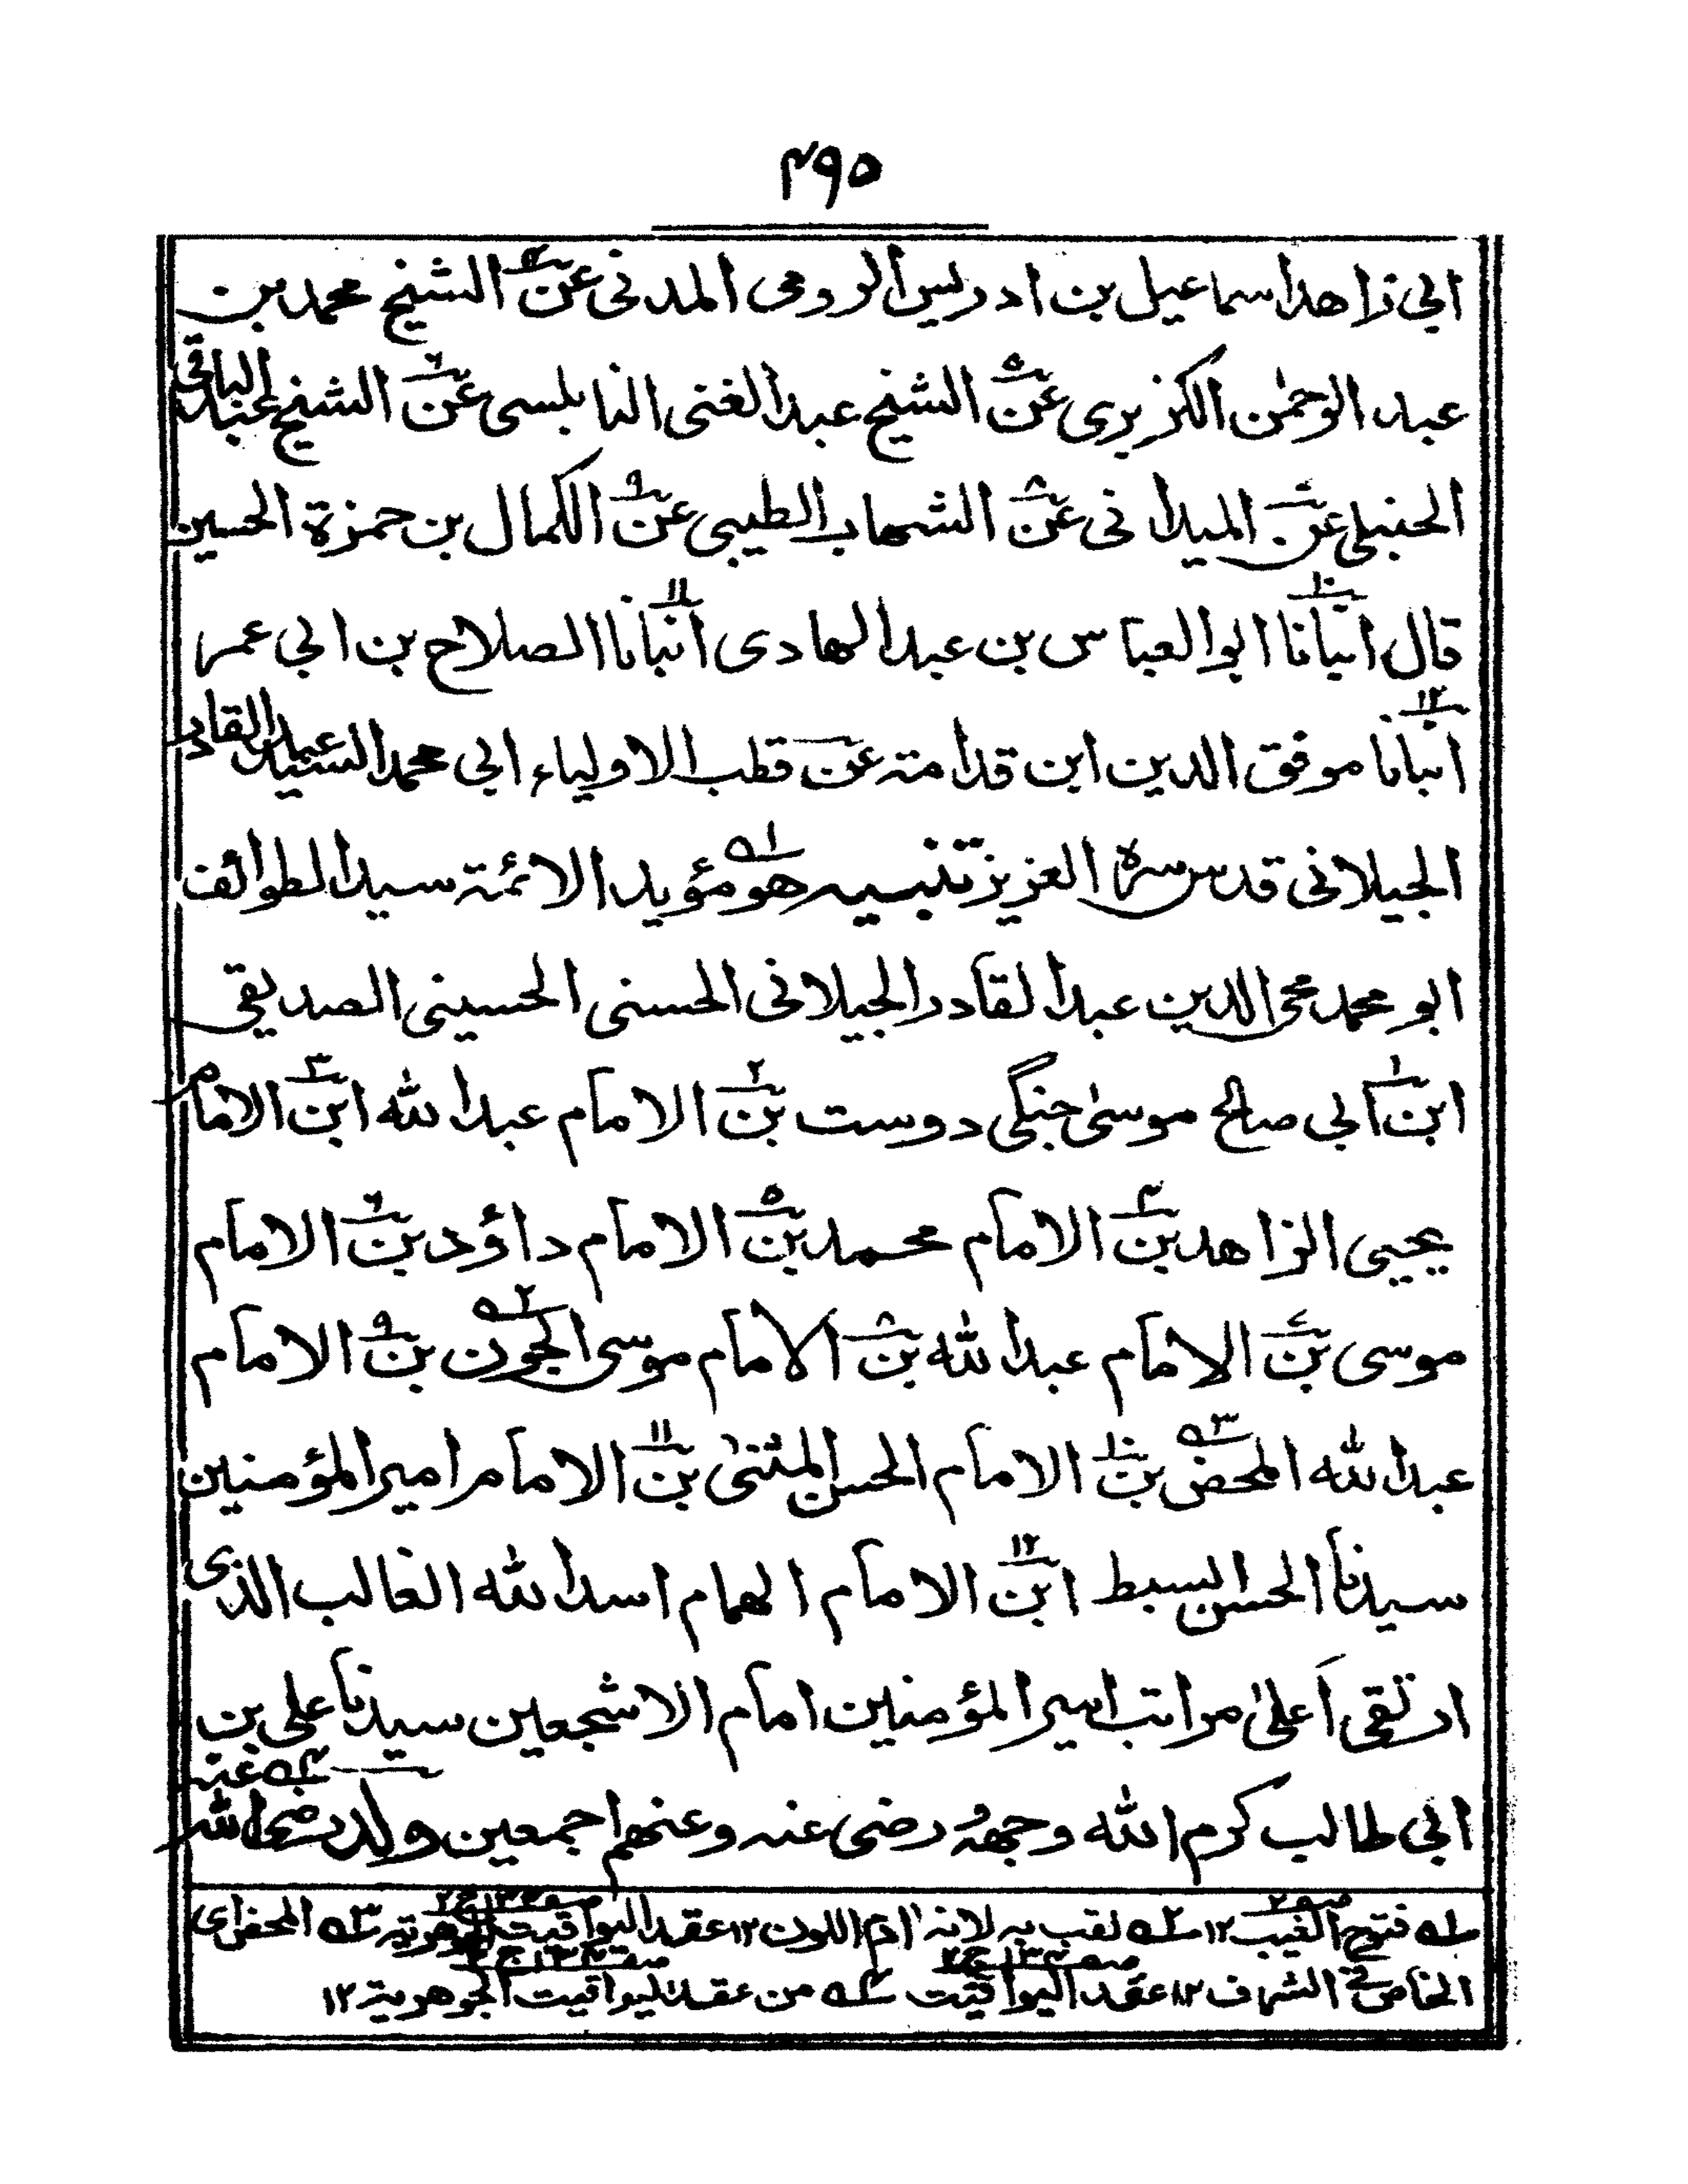 ۴۹۵
ابی زاهد اسماعیل بن ادریس الرومی المدنی عن۴ الشیخ محمد بن
عبد الرحمٰن الکزبری عن۵ الشیخ عبد الغنی النابلسی عن۶ الشیخ عبد الباقی
الحنبلی عن۷ المیدانی عن۸ الشهاب الطیبی عن۹ الکمال بن حمزة الحسین
قال انبانا۱۰ ابو العباس بن عبد الهادی انبانا۱۱ الصلاح بن ابی عمر
انبانا۱۲ موفق الدین ابن قدامة عن قطب الاولیاء ابی محمد السید عبد القادر
الجیلانی قدس سره العزیز تنبیه هو۱ه مؤید الائمة سید الطوائف
ابو محمد محی الدین عبد القادر الجیلانی الحسنی الحسینی الصدیقی
ابن۱ ابی صالح موسیٰ جنگی دوست بن۲ الامام عبد الله ابن۳ الامام
یحیی الزاهد بن۴ الامام محمد بن۵ الامام داؤد بن۶ الامام
موسی بن۷ الامام عبد الله بن۸ الامام موسی الجون۲ه بن۹ الامام
عبد الله المحض۳ه بن۱۰ الامام الحسن المثنیٰ بن۱۱ الامام امیر المؤمنین
سیدنا الحسن السبط ابن۱۲ الامام الهمام اسد الله الغالب الذی
ارتقی اَعلیٰ مراتب امیر المؤمنین امام الاشجعین سیدنا علی بن
ابی طالب کرم الله وجههُ رضی عنه وعنهم اجمعین ولد رضی الله عنه۴ه
۱ه فتوح الغیب ص۲ ۱۲ ۲ه لقب به لانه ادم اللون ۱۲ عقد الیواقیت الجوهریة ۳ه المحض ای
الخاص فی الشرف ۱۲ عقد الیواقیت ۴ه من عقد الیواقیت الجوهریة ۱۲